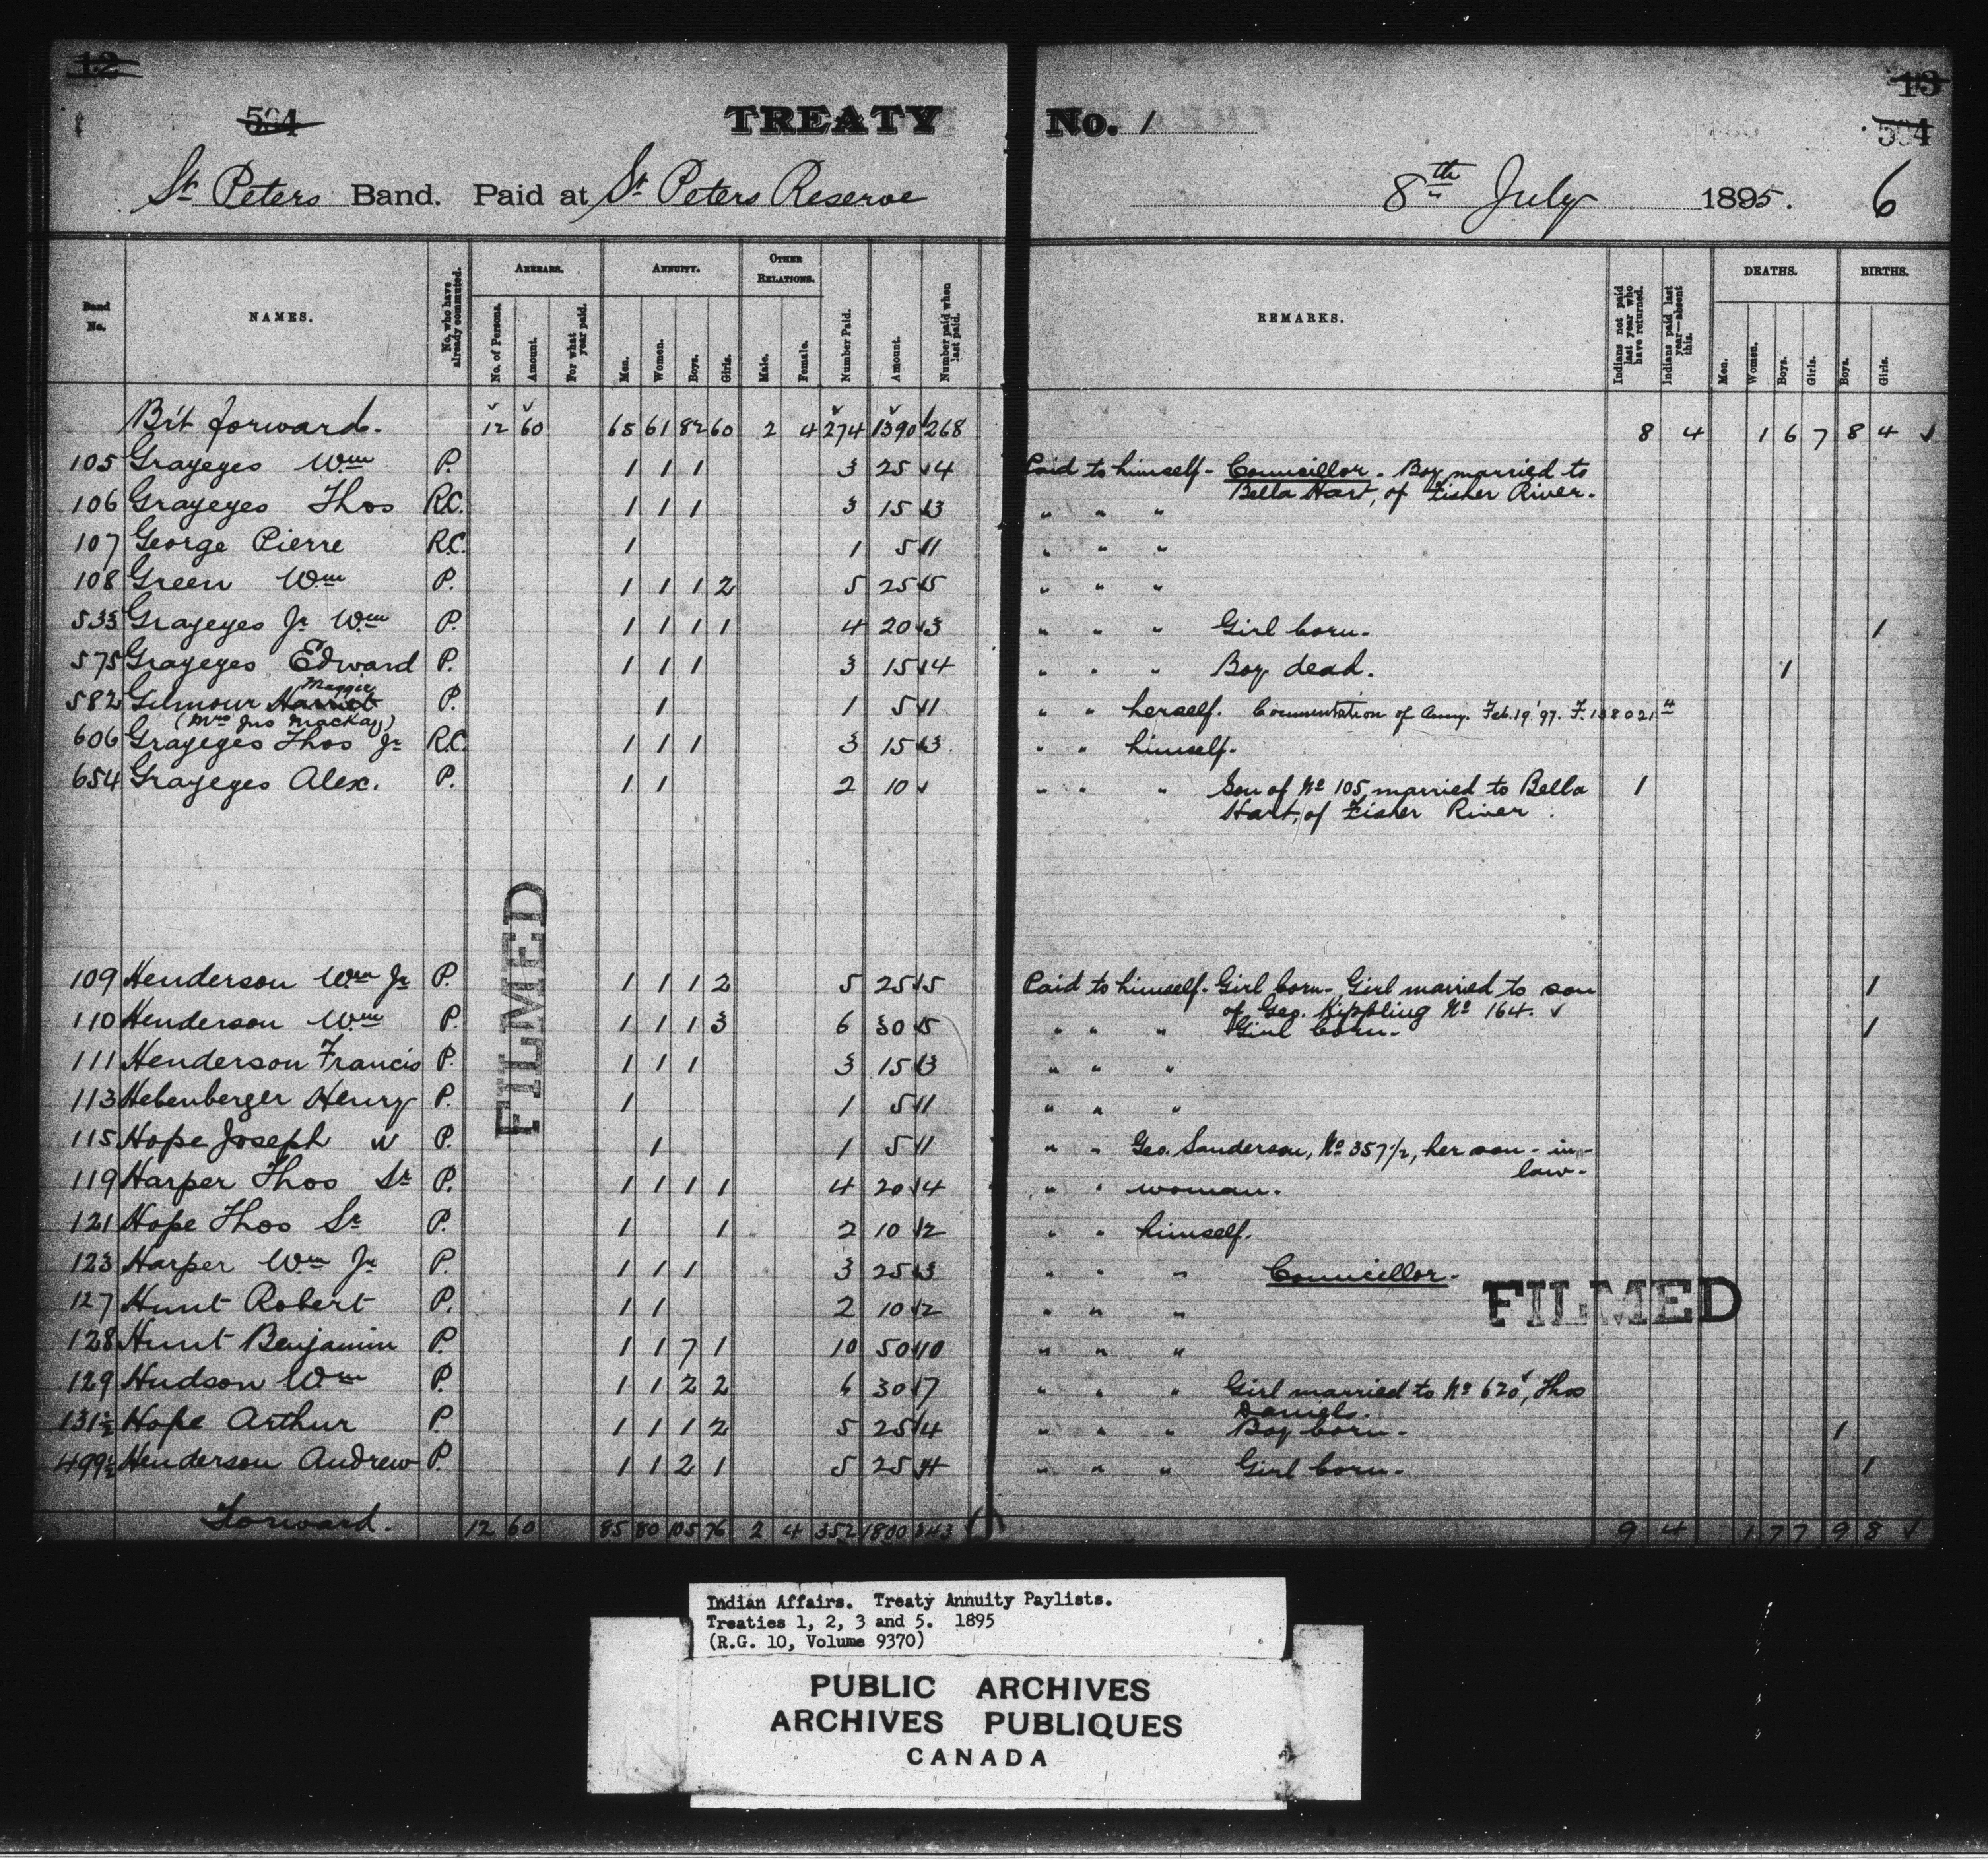 12 13
504 TREATY No. 1 504
St Peters Band. Paid at St Peters Reserve 8th July 1895. 6
Band No. NAMES. No. who have already commuted. ARREARS. No. of Persons. Amount. For what year paid. ANNUITY. Men. Women. Boys. Girls. OTHER RELATIONS. Male. Female. Number Paid. Amount. Number paid when last paid. REMARKS. Indians not paid last year who have returned. Indians paid last year—absent this. DEATHS. Men. Women. Boys. Girls. BIRTHS. Boys. Girls.
Br't forward. 12 60 65 61 82 60 2 4 274 1390 268 8 4 1 6 7 8 4 ✓
105 Grayeyes Wm P. 1 1 1 3 25 ✓4 Paid to himself - Councillor. Boy married to
Bella Hart, of Fisher River.
106 Grayeyes Thos R.C. 1 1 1 3 15 ✓3 " " "
107 George Pierre R.C. 1 1 5 ✓1 " " "
108 Green Wm P. 1 1 1 2 5 25 ✓5 " " "
533 Grayeyes Jr Wm P. 1 1 1 1 4 20 ✓3 " " " Girl born. 1
575 Grayeyes Edward P. 1 1 1 3 15 ✓4 " " " Boy dead. 1
Maggie
582 Gilmour Harriet P. 1 1 5 ✓1 " " herself. Commutation of Anny. Feb. 19 '97. F. 138021-4
(Mrs Jno MacKay)
606 Grayeyes Thos Jr R.C. 1 1 1 3 15 ✓3 " " himself.
654 Grayeyes Alex. P. 1 1 2 10 ✓ " " " Son of No 105, married to Bella 1
Hart, of Fisher River.
FILMED
109 Henderson Wm Jr P. 1 1 1 2 5 25 ✓5 Paid to himself. Girl born. Girl married to son 1
of Geo. Kippling No 164. ✓
110 Henderson Wm P. 1 1 1 3 6 30 ✓5 " " " Girl born. 1
111 Henderson Francis P. 1 1 1 3 15 ✓3 " " "
113 Hebenberger Henry P. 1 1 5 ✓1 " " "
115 Hope Joseph W P. 1 1 5 ✓1 " " Geo. Sanderson, No 357 1/2, her son-in-
law.
119 Harper Thos Sr P. 1 1 1 1 4 20 ✓4 " " woman.
121 Hope Thos Sr P. 1 1 2 10 ✓2 " " himself.
123 Harper Wm Jr P. 1 1 1 3 25 ✓3 " " " Councillor.
FILMED
127 Hunt Robert P. 1 1 2 10 ✓2 " " "
128 Hunt Benjamin P. 1 1 7 1 10 50 ✓10 " " "
129 Hudson Wm P. 1 1 2 2 6 30 ✓7 " " " Girl married to No 620, Thos
Daniels.
131½ Hope Arthur P. 1 1 1 2 5 25 ✓4 " " " Boy born. 1
499½ Henderson Andrew P. 1 1 2 1 5 25 ✓4 " " " Girl born. 1
Forward. 12 60 85 80 105 76 2 4 352 1800 343 9 4 1 7 7 9 8 ✓
Indian Affairs. Treaty Annuity Paylists.
Treaties 1, 2, 3 and 5. 1895
(R.G. 10, Volume 9370)
PUBLIC ARCHIVES
ARCHIVES PUBLIQUES
CANADA